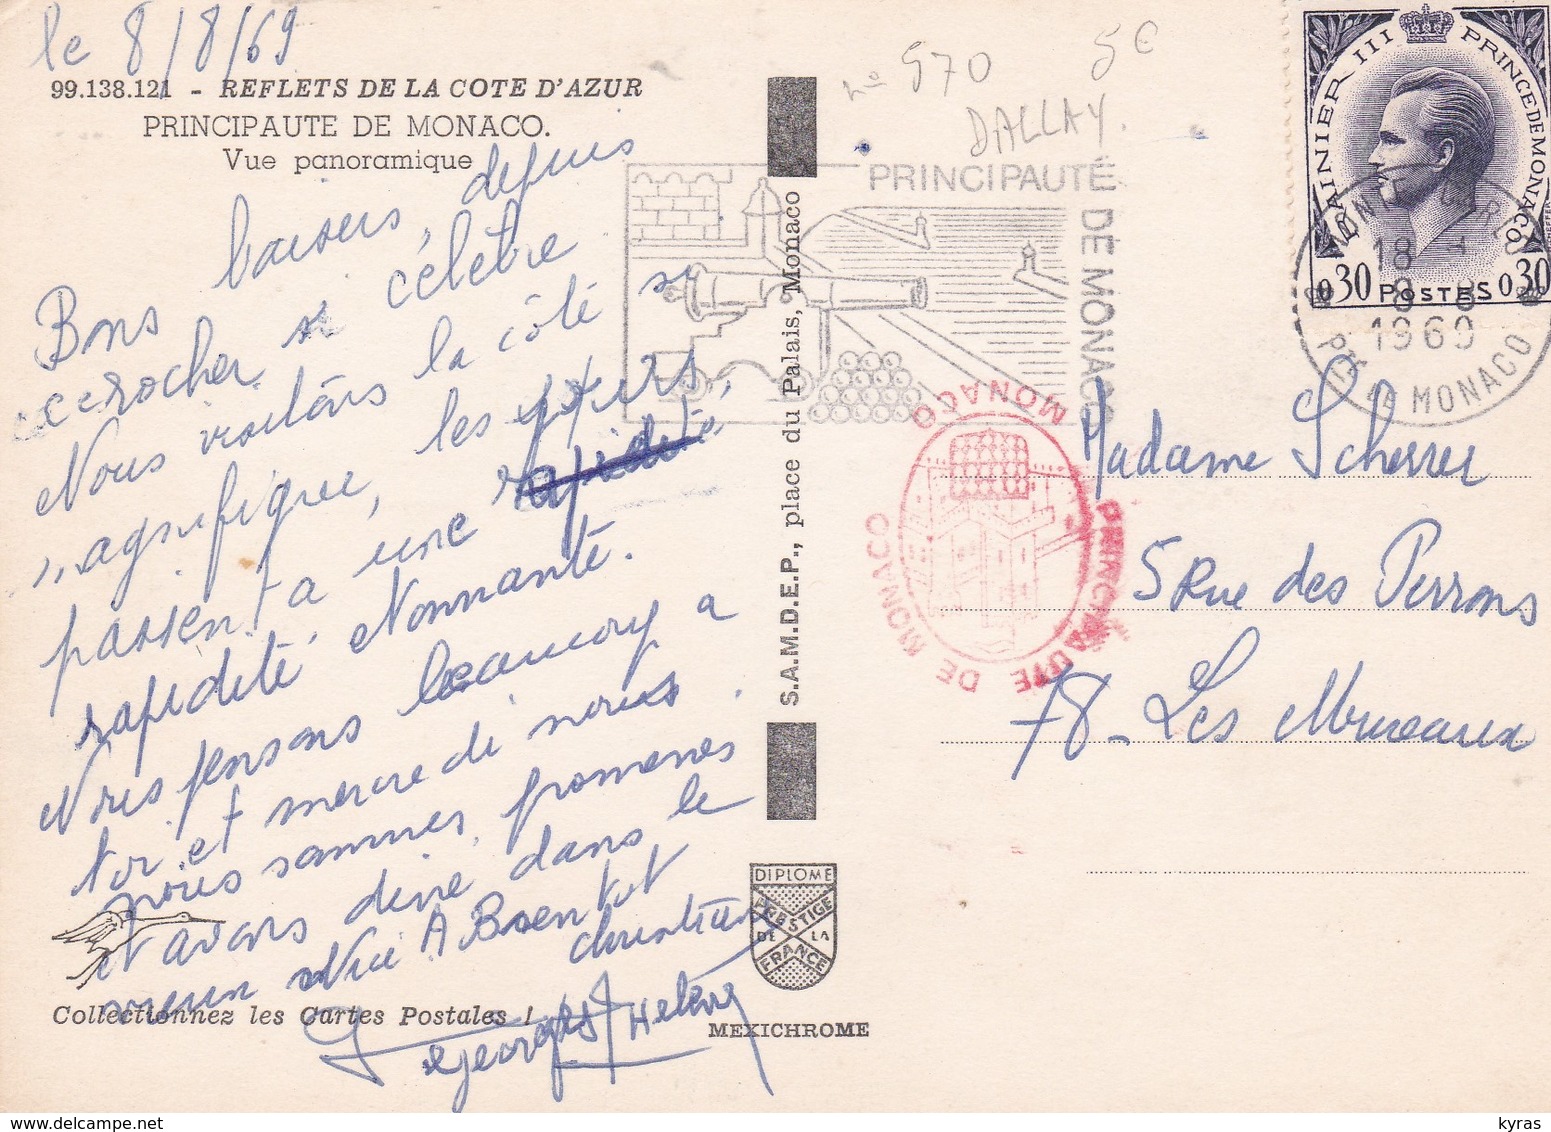 le 8/8/69
99.138.121 - REFLETS DE LA COTE D'AZUR
PRINCIPAUTE DE MONACO.
Vue panoramique
Bons baisers, depuis
ce rocher si célèbre
Nous visitons la côte si
magnifique, les jours,
passent à une rapidité
rapidité étonnante.
Nous pensons beaucoup a
toi et mercredi nous
nous sommes promenés
et avons diné dans le
vieux Nice A Bientot
Christian
Georges Helène
Collectionnez les Cartes Postales !
S.A.M.D.E.P., place du Palais, Monaco
DIPLOME
PRESTIGE
DE LA
FRANCE
MEXICHROME
n° 970
5€
DALLAY.
PRINCIPAUTÉ
DE MONACO
RAINIER III PRINCE DE MONACO
0,30 POSTES 0,30
18 H
8 - 8
1969
PTE DE MONACO
PRINCIPAUTE DE MONACO
MONACO
Madame Scherrer
5 Rue des Perrons
78 - Les Mureaux
kyras